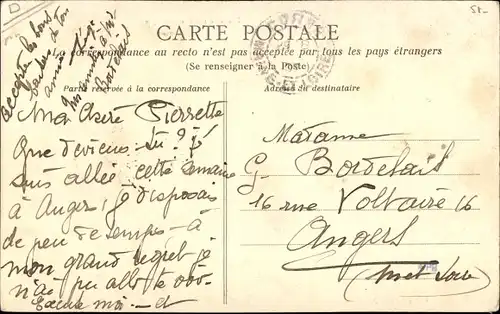 D
58-
CARTE POSTALE
La correspondance au recto n'est pas acceptée par tous les pays étrangers
(Se renseigner à la Poste)
Partie réservée à la correspondance
Adresse du destinataire
accepte les bons
baisers de ton
amie
Ma chère Pierrette
Que deviens-tu ? j'
suis allée cette semaine
à Angers, je disposais
de peu de temps - à
mon grand regret je
n'ai pu aller te voir
Excuse moi - et
Madame
G. Bordelais
16 rue Voltaire 16
Angers